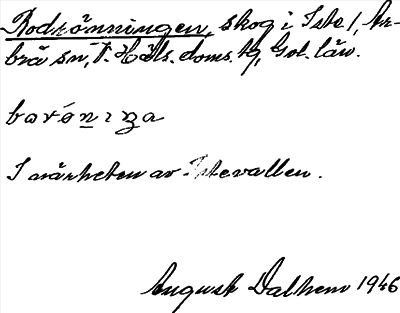 Rodrömningen, skog i Iste 1, Ar-
brå sn, V. Häls. doms. tg, Gvl. län.
I närheten av Istevallen.
August Dalhem 1946